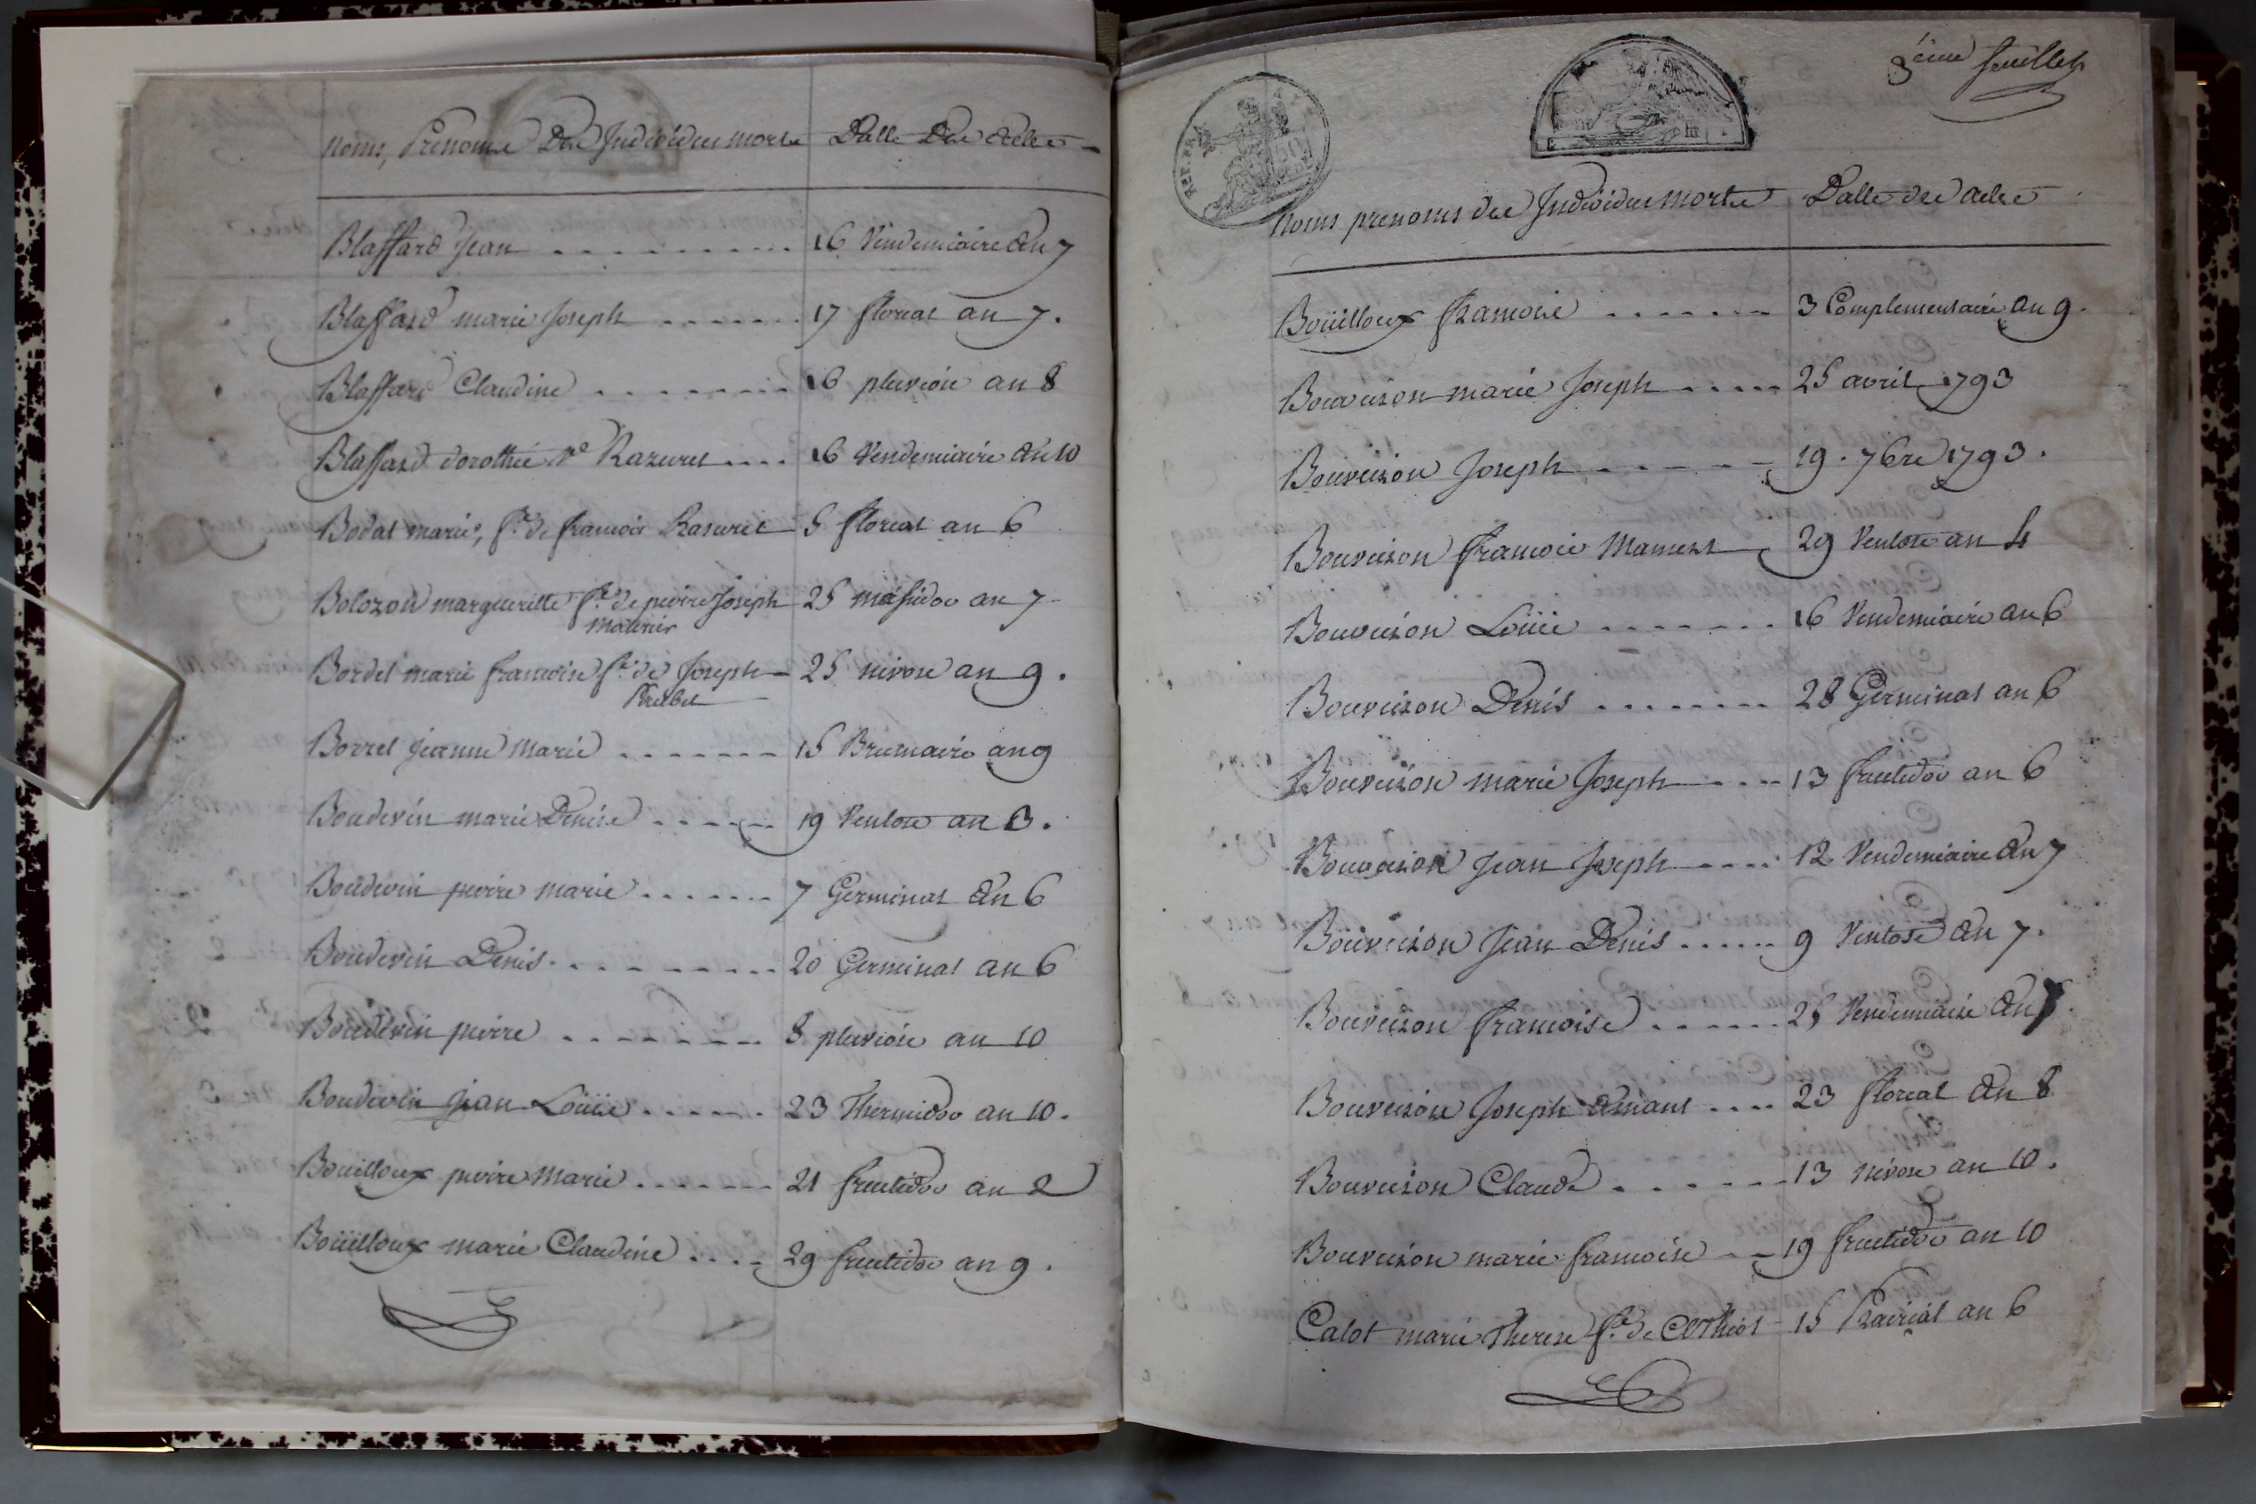 Noms, Prenoms Des Individus morts Datte Des Actes
Blaffard Jean 16 Vendemiaire An 7
Blaffard marie Joseph 17 floreal an 7.
Blaffard Claudine 16 pluviôse an 8
Blaffard dorothée Ve Razurel 16 Vendemiaire An 10
Bodat marie, fe. de francois Rasurel 5 floreal an 6
Bolozon margueritte fe. de pierre Joseph 25 messidor an 7
Bordet marie francoise fe. de Joseph 25 nivose an 9.
Borret jeanne Marie 15 Brumaire an 9
Boudevin marie Denise 19 Ventose an 3.
Boudevin pierre marie 7 Germinal An 6
Boudevin Denis 20 Germinal an 6
Boudevin pierre 8 pluviôse an 10
Boudevin Jean Loüis 23 Thermidor an 10.
Boüilloux pierre Marie 21 fructidor an 2
Boüilloux marie Claudine 29 fructidor an 9.
3eme feuillet
REP. FRA
Noms prenoms des Individus morts Datte des actes
Boüilloux francois 3 Complementaire an 9.
Bouveison marie Joseph 25 avril 1793
Bouveison Joseph 19. 7bre 1793.
Bouveison francois Mamert 29 Ventose an 4
Bouveison Loüis 16 Vendemiaire an 6
Bouveison Denis 28 Germinal an 6
Bouveison marie Joseph 13 fructidor an 6
Bouveison Jean Joseph 12 Vendemiaire An 7
Bouveison Jean Denis 9 Ventose An 7.
Bouveison francoise 25 Vendemiaire An
Bouveison Joseph Amant 23 floreal An 8
Bouveison Claude 13 nivose an 10.
Bouveison marie francoise 19 fructidor an 10
Calot marie Therese fe. de 15 Prairial an 6